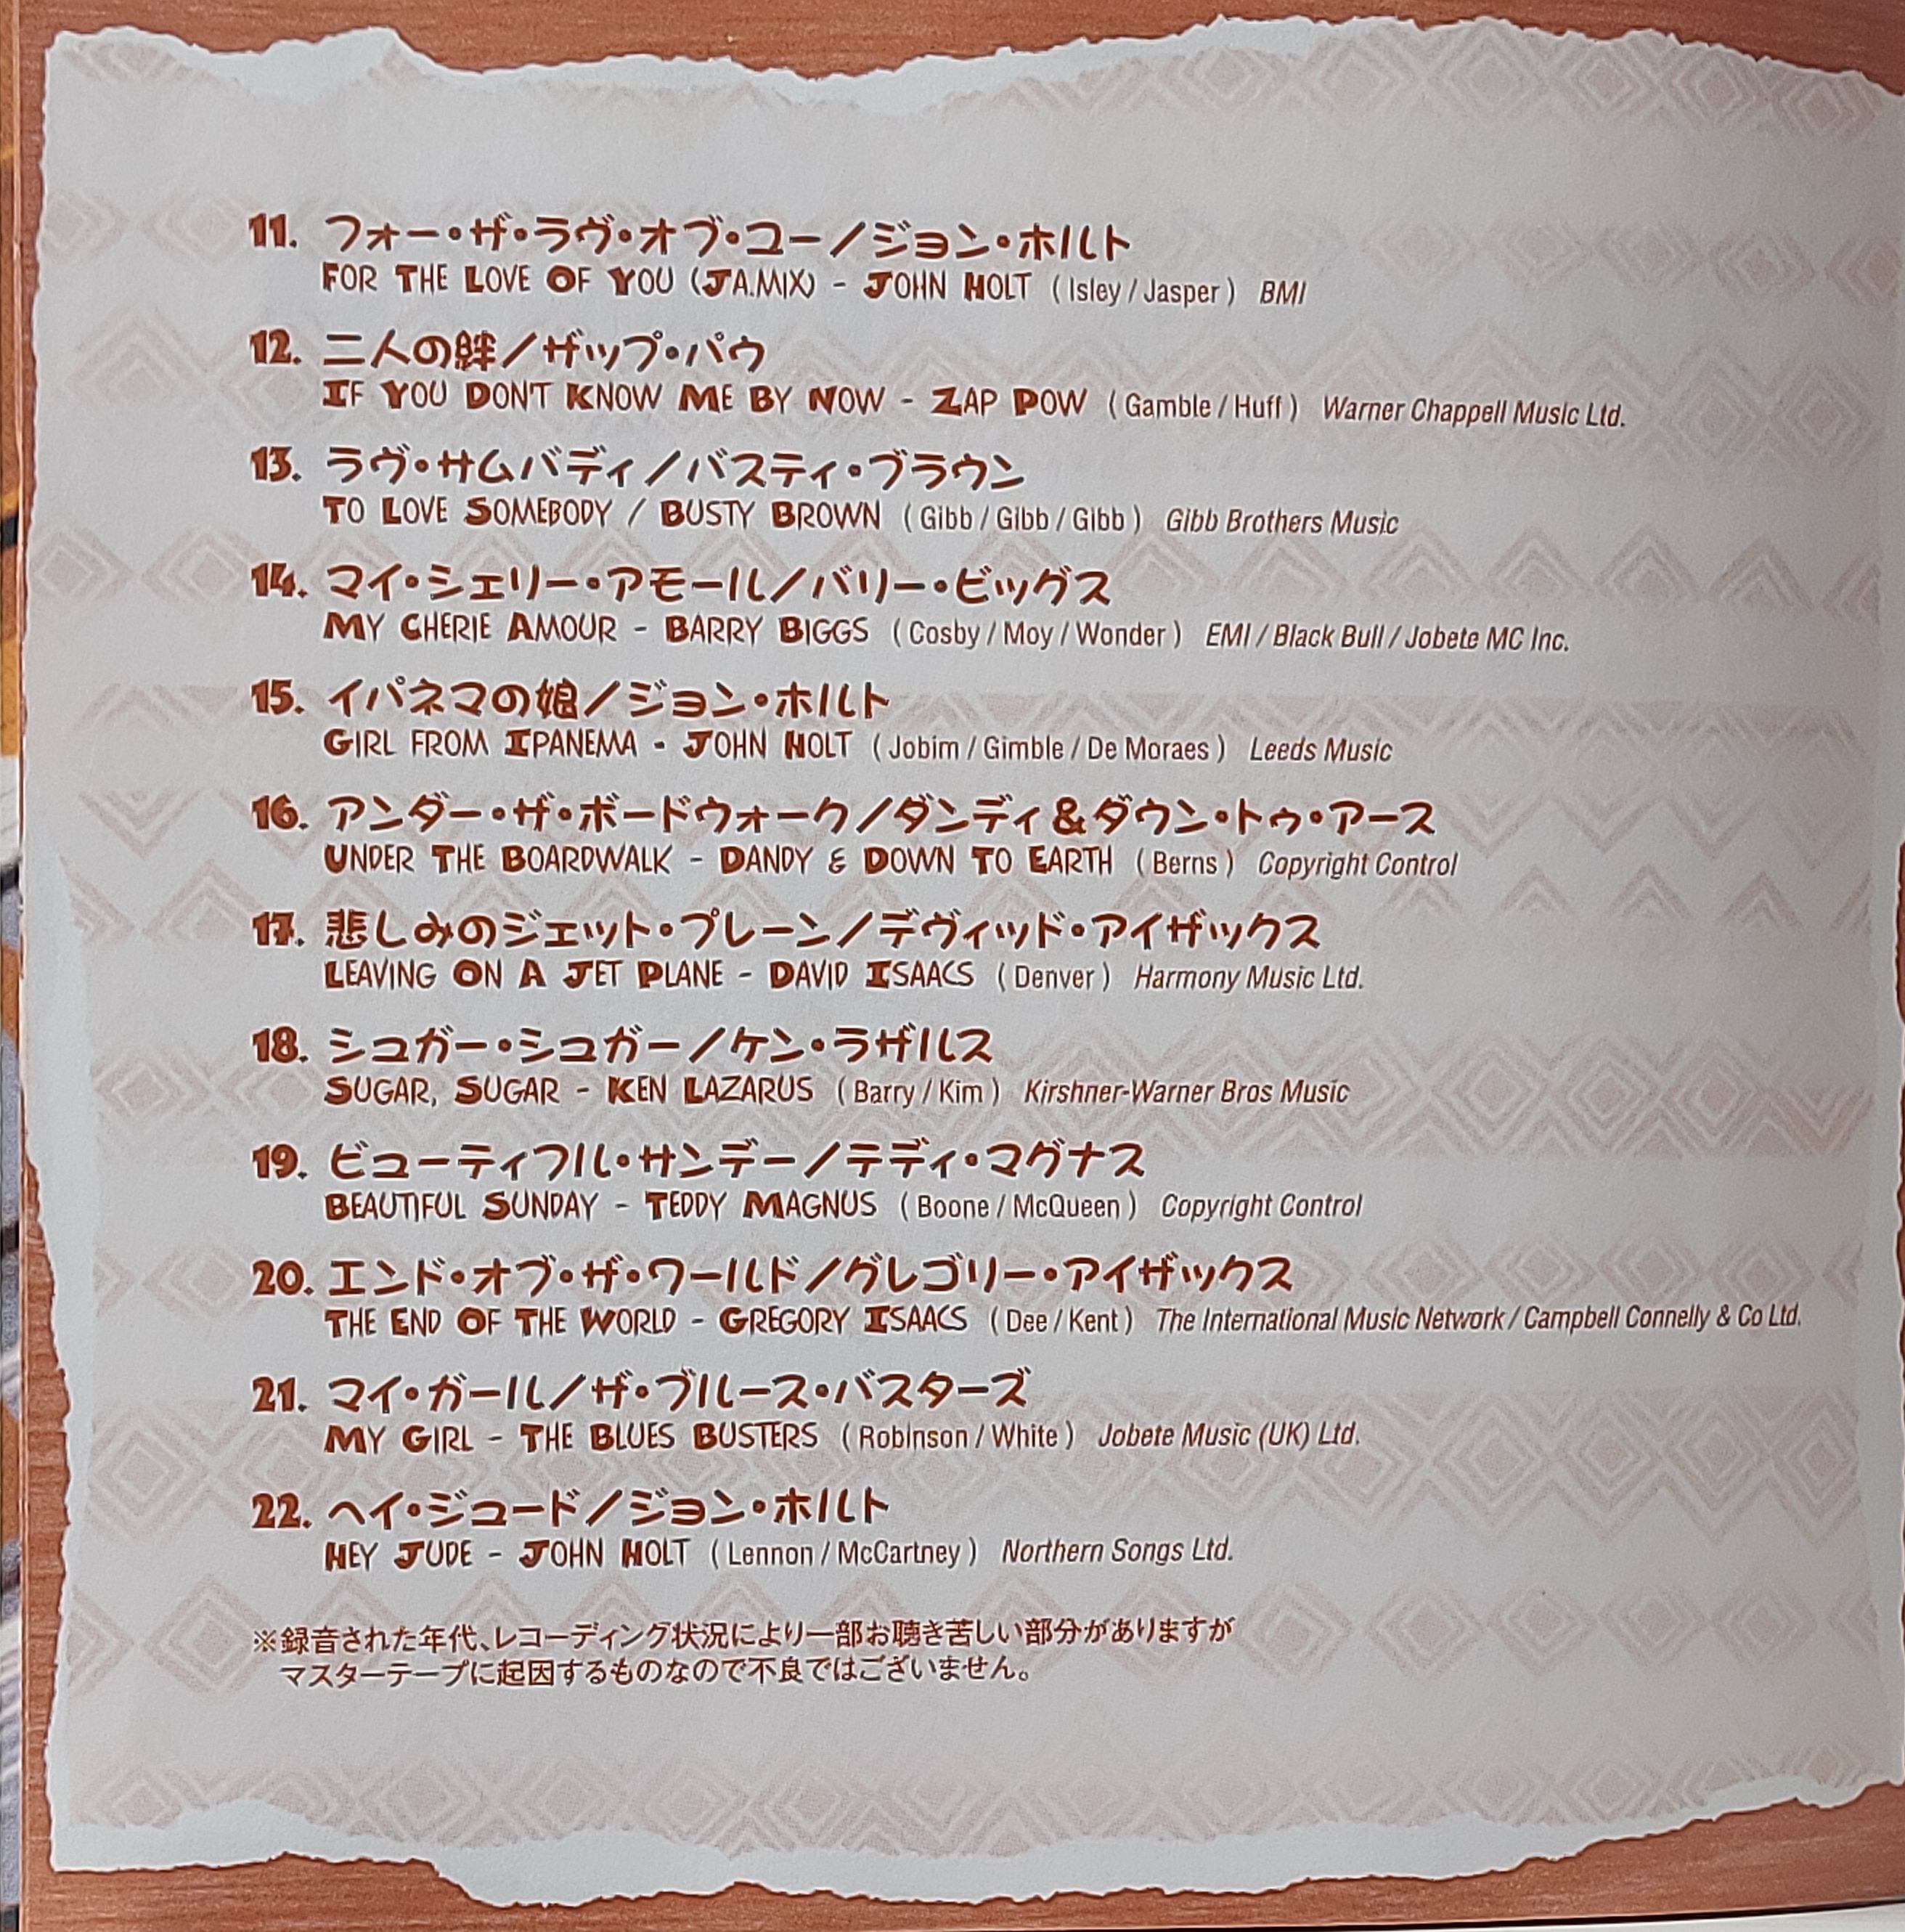 11. フォー・ザ・ラヴ・オブ・ユー／ジョン・ホルト
FOR THE LOVE OF YOU (JA.MIX) - JOHN HOLT ( Isley / Jasper ) BMI
12. 二人の絆／ザップ・パウ
IF YOU DON'T KNOW ME BY NOW - ZAP POW ( Gamble / Huff ) Warner Chappell Music Ltd.
13. ラヴ・サムバディ／バスティ・ブラウン
TO LOVE SOMEBODY / BUSTY BROWN ( Gibb / Gibb / Gibb ) Gibb Brothers Music
14. マイ・シェリー・アモール／バリー・ビッグス
MY CHERIE AMOUR - BARRY BIGGS ( Cosby / Moy / Wonder ) EMI / Black Bull / Jobete MC Inc.
15. イパネマの娘／ジョン・ホルト
GIRL FROM IPANEMA - JOHN HOLT ( Jobim / Gimble / De Moraes ) Leeds Music
16. アンダー・ザ・ボードウォーク／ダンディ＆ダウン・トゥ・アース
UNDER THE BOARDWALK - DANDY & DOWN TO EARTH ( Berns ) Copyright Control
17. 悲しみのジェット・プレーン／デヴィッド・アイザックス
LEAVING ON A JET PLANE - DAVID ISAACS ( Denver ) Harmony Music Ltd.
18. シュガー・シュガー／ケン・ラザルス
SUGAR, SUGAR - KEN LAZARUS ( Barry / Kim ) Kirshner-Warner Bros Music
19. ビューティフル・サンデー／テディ・マグナス
BEAUTIFUL SUNDAY - TEDDY MAGNUS ( Boone / McQueen ) Copyright Control
20. エンド・オブ・ザ・ワールド／グレゴリー・アイザックス
THE END OF THE WORLD - GREGORY ISAACS ( Dee / Kent ) The International Music Network / Campbell Connelly & Co Ltd.
21. マイ・ガール／ザ・ブルース・バスターズ
MY GIRL - THE BLUES BUSTERS ( Robinson / White ) Jobete Music (UK) Ltd.
22. ヘイ・ジュード／ジョン・ホルト
HEY JUDE - JOHN HOLT ( Lennon / McCartney ) Northern Songs Ltd.
※録音された年代、レコーディング状況により一部お聴き苦しい部分がありますが
マスターテープに起因するものなので不良ではございません。